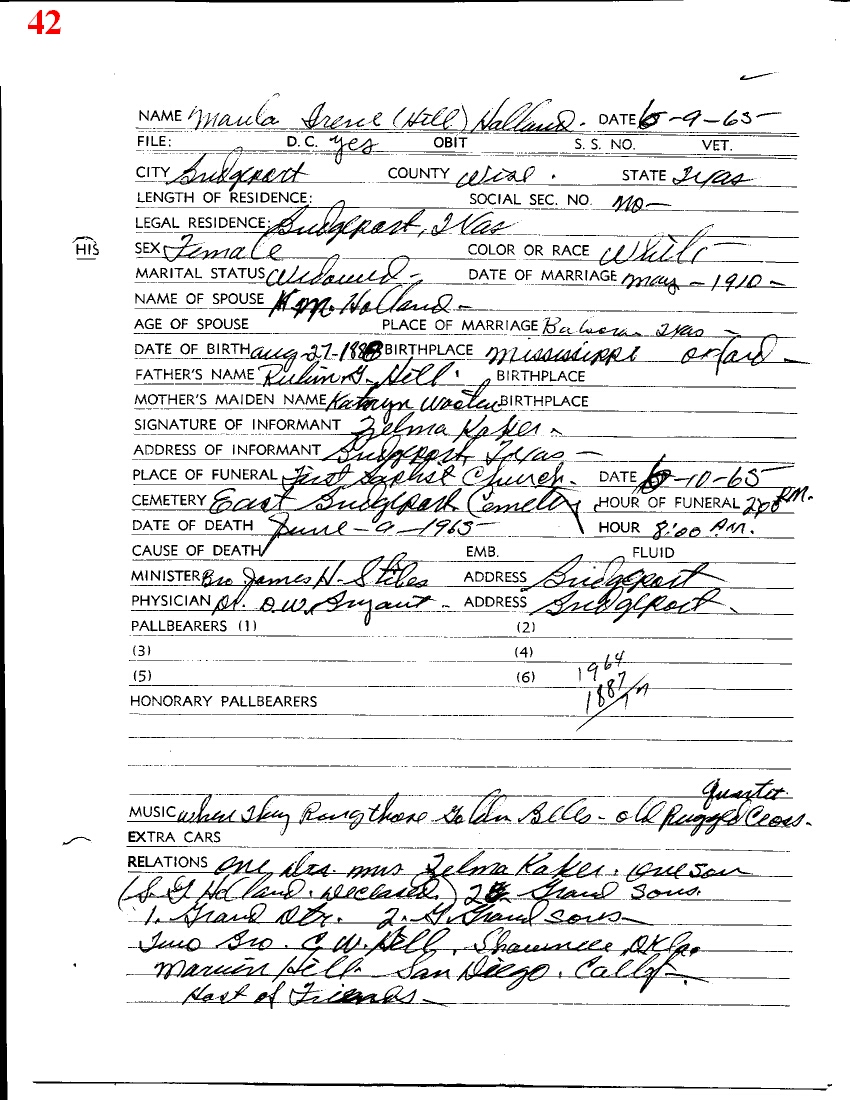 42
NAME Maula Irene (Hill) Holland. DATE 6-9-65
FILE: D.C. yes OBIT S. S. NO. VET.
CITY Bridgeport COUNTY Wise. STATE Texas
LENGTH OF RESIDENCE: SOCIAL SEC. NO. no-
LEGAL RESIDENCE: Bridgeport, Texas
HIS SEX Female COLOR OR RACE White
MARITAL STATUS Widowed - DATE OF MARRIAGE may - 1910 -
NAME OF SPOUSE M. Holland -
AGE OF SPOUSE PLACE OF MARRIAGE Texas -
DATE OF BIRTH aug-27-1888 BIRTHPLACE Mississippi Oxford -
FATHER'S NAME G. Hill. BIRTHPLACE
MOTHER'S MAIDEN NAME Kathryn BIRTHPLACE
SIGNATURE OF INFORMANT Zelma Kaker -
ADDRESS OF INFORMANT Bridgeport, Texas -
PLACE OF FUNERAL First Baptist Church. DATE 6-10-65
CEMETERY East Bridgeport Cemetery HOUR OF FUNERAL 2:00 P.M.
DATE OF DEATH June-9-1965 HOUR 8:00 A.M.
CAUSE OF DEATH EMB. FLUID
MINISTER Bro James H. Stiles ADDRESS Bridgeport
PHYSICIAN Dr. D.W. Bryant - ADDRESS Bridgeport
PALLBEARERS (1) (2)
(3) (4)
(5) (6) 1964
1887
HONORARY PALLBEARERS
Quartet.
MUSIC When They Rang those Golden Bells - old Rugged Cross.
EXTRA CARS
RELATIONS one Mrs Zelma Kaker. one son
(S.G. Holland. Deceased.) 2 Grand Sons.
1. Grand Dtr. 2. G. Grand sons
Two Bro. C.W. Hill, Shawnee, Okla.
Marvin Hill. San Diego, Calif.
Host of Friends -